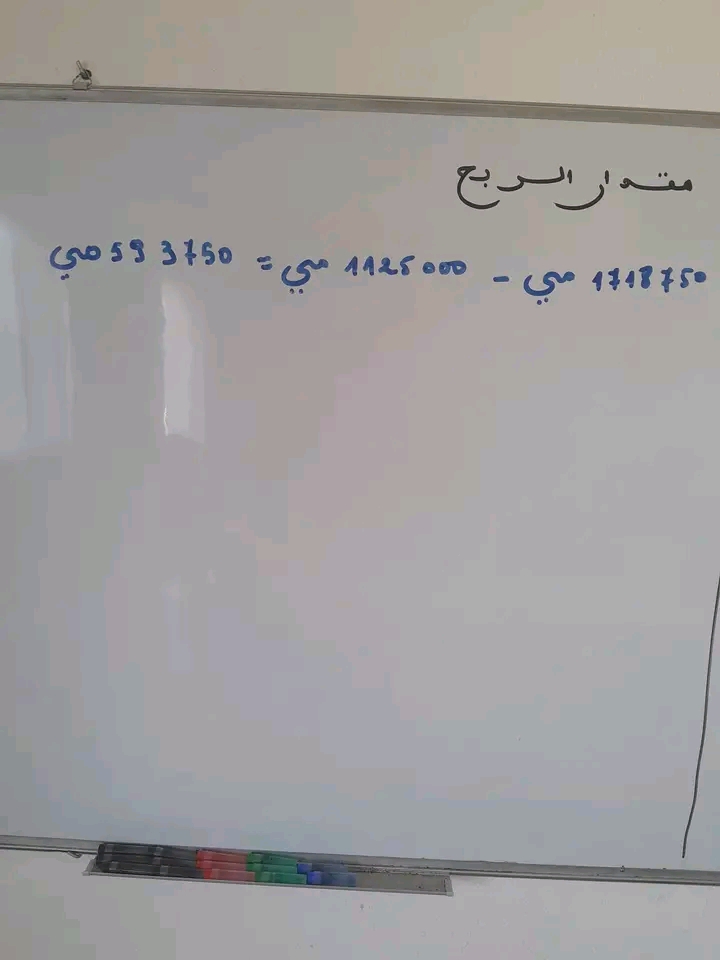 مقدار الربح
1718750 مي - 1125000 مي = 593750 مي